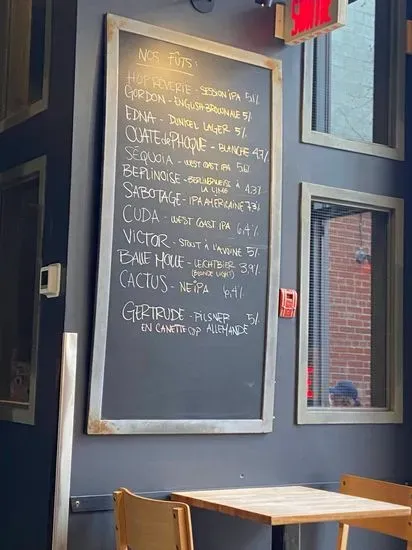 SORTIE
NOS FÛTS:
HOP RÊVERIE - SESSION IPA 5%
GORDON - ENGLISH BROWN ALE 5%
EDNA - DUNKEL LAGER 5%
OUATE de PHOQUE - BLANCHE 4.7%
SÉQUOIA - WEST COAST IPA
BERLINOISE - BERLINERWEISSE À 4.3%
LA LIME
SABOTAGE - IPA AMÉRICAINE 7.3%
CUDA - WEST COAST IPA 6,4%
VICTOR - STOUT À L'AVOINE 5%
BALLE MOLLE - LEICHTBIER 3.9%
(BLONDE LIGHT)
CACTUS - NEIPA 6,4%
GERTRUDE - PILSNER 5%
EN CANETTE ALLEMANDE